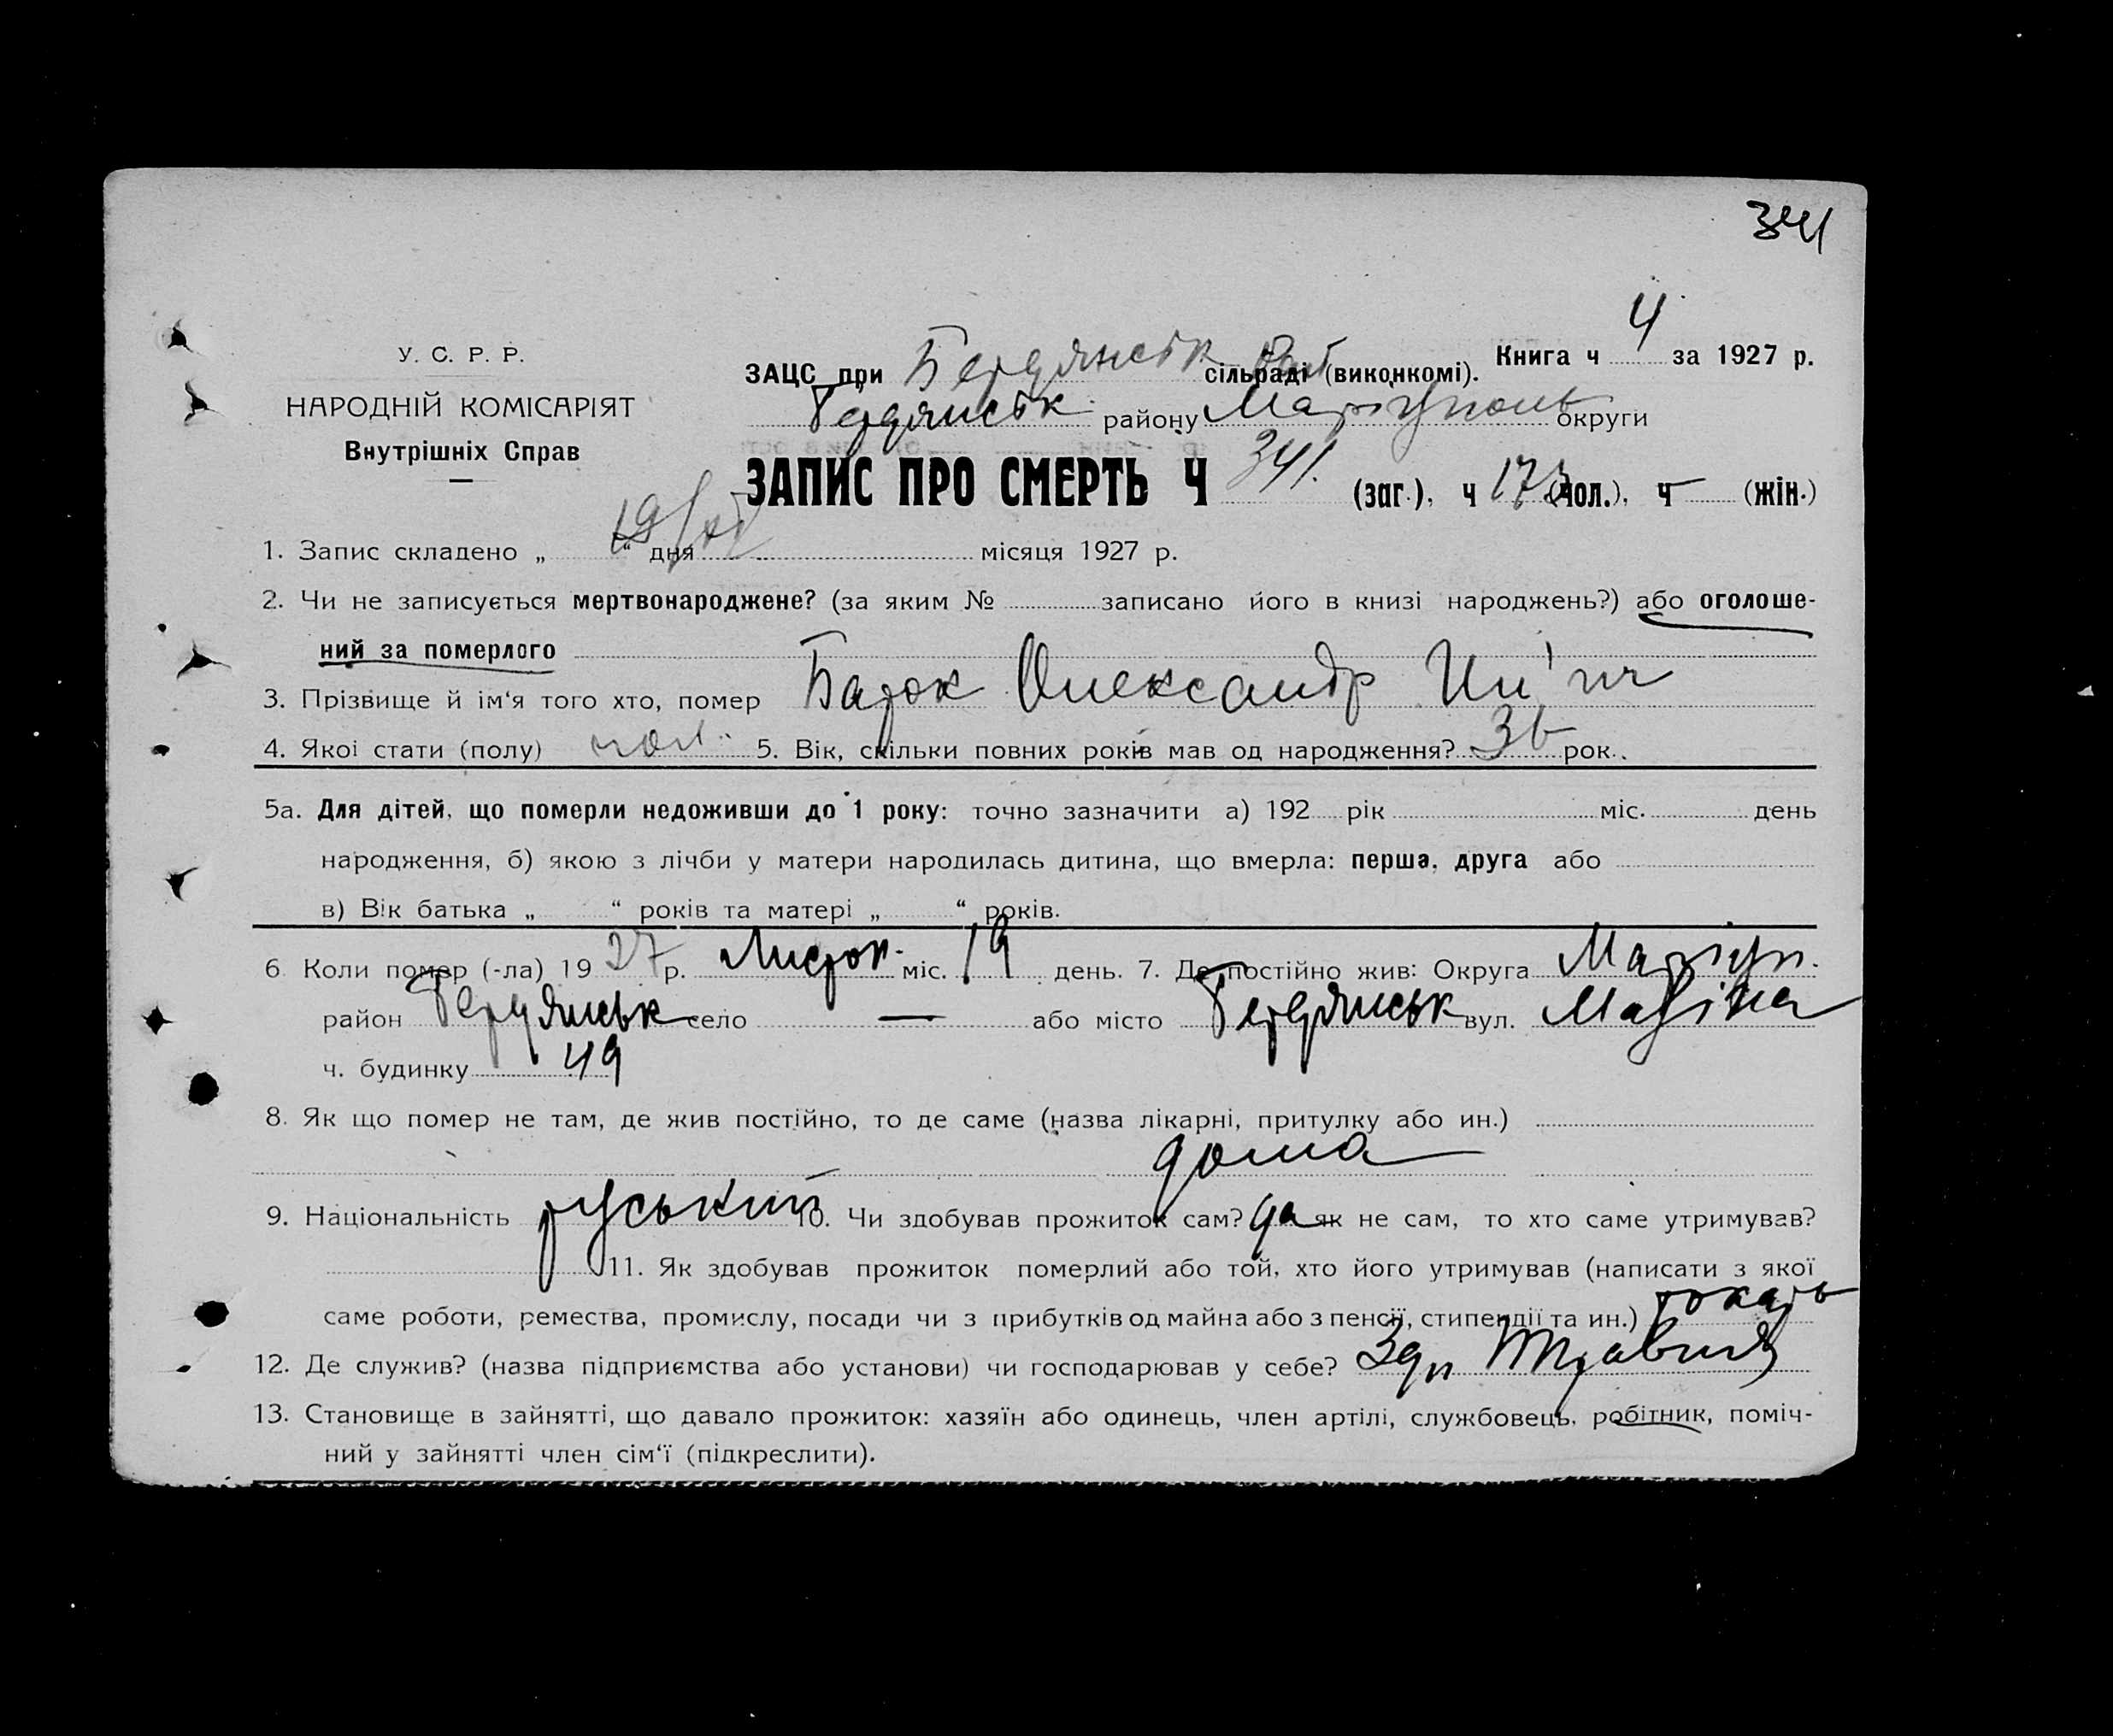 341
У. С. Р. Р.
НАРОДНІЙ КОМІСАРІЯТ
Внутрішніх Справ
ЗАЦС при Бердянськ сільраді (виконкомі).
Книга ч 4 за 1927 р.
Бердянськ району Маріуполь округи
ЗАПИС ПРО СМЕРТЬ Ч 341. (заг.), ч 173 (чол.), ч — (жін.)
1. Запис складено „ 19/XI “ дня місяця 1927 р.
2. Чи не записується мертвонароджене? (за яким № записано його в книзі народжень?) або оголоше-
ний за померлого
3. Прізвище й ім‘я того хто, помер Барок Олександр
4. Якоі стати (полу) чол. 5. Вік, скільки повних років мав од народження? 36 рок.
5а. Для дітей, що померли недоживши до 1 року: точно зазначити а) 192 рік міс. день
народження, б) якою з лічби у матери народилась дитина, що вмерла: перша, друга або
в) Вік батька „ “ років та матері „ “ років.
6. Коли помер (-ла) 1927 р. Листоп. міс. 19 день. 7. Де постійно жив: Округа Маріуп.
район Бердянськ село — або місто Бердянськ вул.
ч. будинку 49
8. Як що помер не там, де жив постійно, то де саме (назва лікарні, притулку або ин.)
дома
9. Національність руський 10. Чи здобував прожиток сам? да як не сам, то хто саме утримував?
11. Як здобував прожиток померлий або той, хто його утримував (написати з якої
саме роботи, ремества, промислу, посади чи з прибутків од майна або з пенсії, стипендії та ин.) токарь
12. Де служив? (назва підприємства або установи) чи господарював у себе?
13. Становище в зайнятті, що давало прожиток: хазяїн або одинець, член артілі, службовець, робітник, поміч-
ний у зайнятті член сім‘ї (підкреслити).